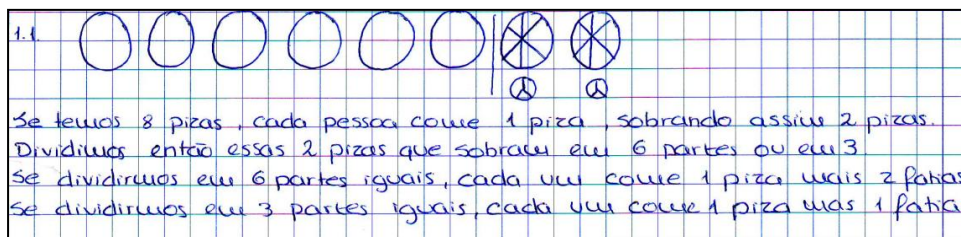 1.1.
Se temos 8 pizas, cada pessoa come 1 piza, sobrando assim 2 pizas.
Dividimos então essas 2 pizas que sobram em 6 partes ou em 3.
Se dividirmos em 6 partes iguais, cada um come 1 piza mais 2 fatias
Se dividirmos em 3 partes iguais, cada um come 1 piza mas 1 fatia